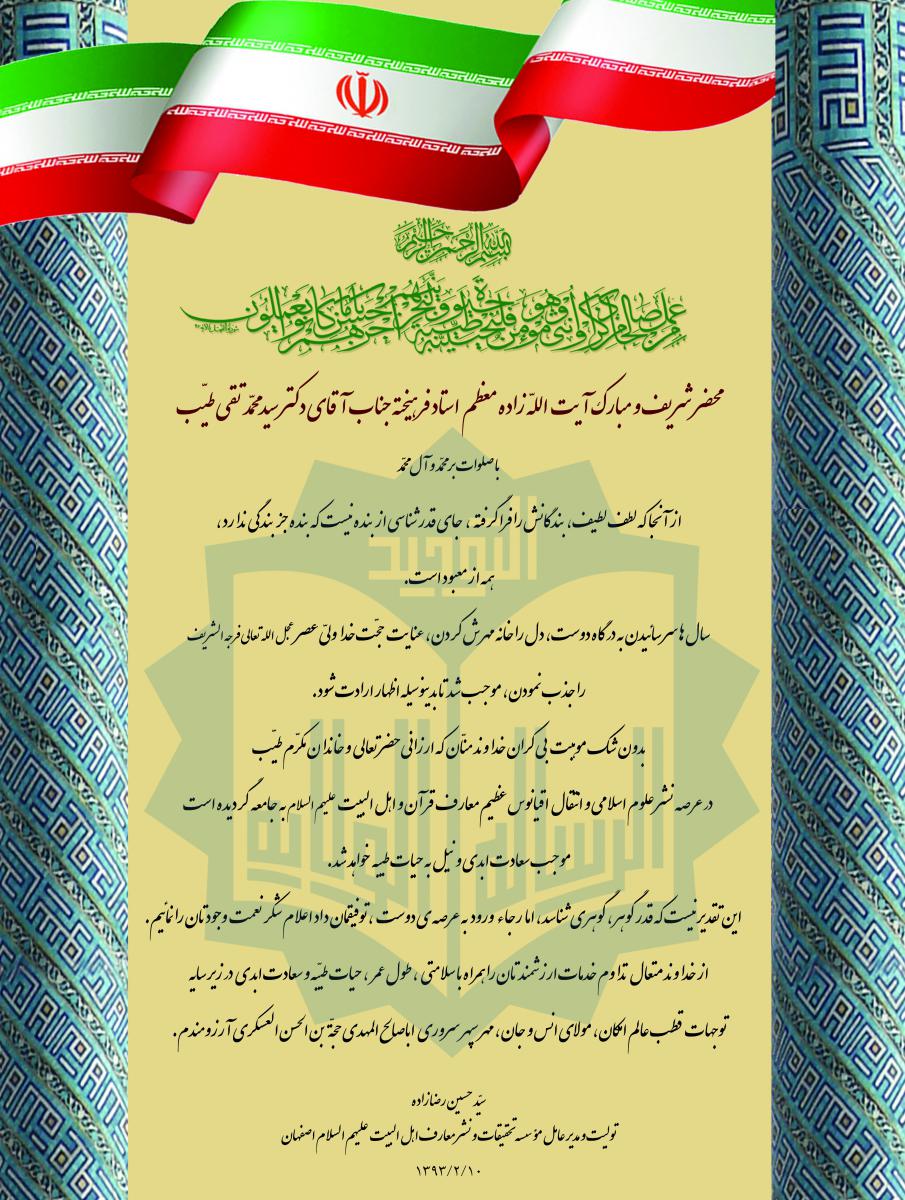 بسم الله الرحمن الرحیم
من عمل صالحا من ذکر او انثی و هو مؤمن فلنحیینه حیوة طیبة و لنجزینهم اجرهم باحسن ما کانوا یعملون
محضر شریف و مبارک آیت اللّه زاده معظم استاد فرهیخته جناب آقای دکتر سید محمّد تقی طیّب
با صلوات بر محمّد و آل محمّد
از آنجا که لطف لطیف، بندگانش را فرا گرفته، جای قدرشناسی از بنده نیست که بنده جز بندگی ندارد،
همه از معبود است.
سال ها سر سائیدن به درگاه دوست، دل را خانه مهرش کردن، عنایت حجّت خدا ولیّ عصر عجل الله تعالی فرجه الشریف
را جذب نمودن، موجب شد تا بدینوسیله اظهار ارادت شود.
بدون شک موهبت بی کران خداوند منّان که ارزانی حضرتعالی و خاندان مکرّم طیّب
در عرصه نشر علوم اسلامی و انتقال اقیانوس عظیم معارف قرآن و اهل البیت علیهم السلام به جامعه گردیده است
موجب سعادت ابدی و نیل به حیات طیبه خواهد شد.
این تقدیر نیست که قدر گوهر، گوهری شناسد، اما رجاء ورود به عرصه ی دوست، توفیقمان داد اعلام شکر نعمت وجودتان را نمائیم.
از خداوند متعال تداوم خدمات ارزشمندتان را همراه با سلامتی، طول عمر، حیات طیّبه و سعادت ابدی در زیر سایه
توجهات قطب عالم امکان، مولای انس و جان، مهر سپهر سروری اباصالح المهدی حجّة بن الحسن العسکری آرزومندم.
سیّد حسین رضازاده
تولیت و مدیر عامل مؤسسه تحقیقات و نشر معارف اهل البیت علیهم السلام اصفهان
۱۳۹۳/۲/۱۰